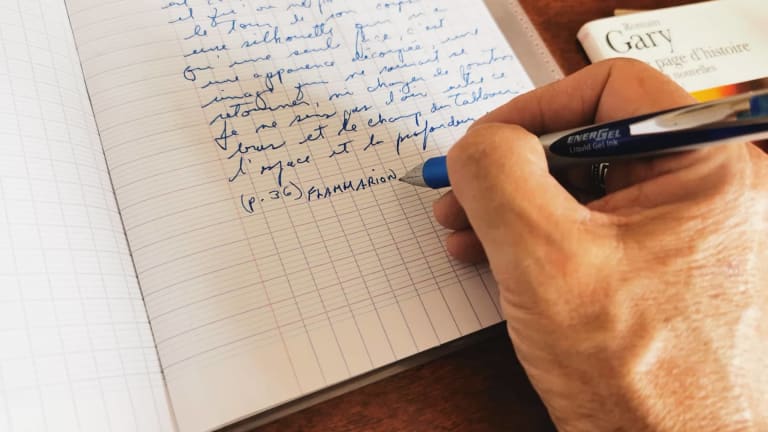 le tour de son corps
une silhouette qui n'a
qu'une seule face, c'est
une apparence découpée, une
image qui ne saurait se
retourner, ni changer de position
Je ne sens pas l'air entre ce
bras et le champ du tableau
l'espace et la profondeur
(p.36) FLAMMARION
Romain
Gary
page d'histoire
nouvelles
ENERGEL
Liquid Gel Ink